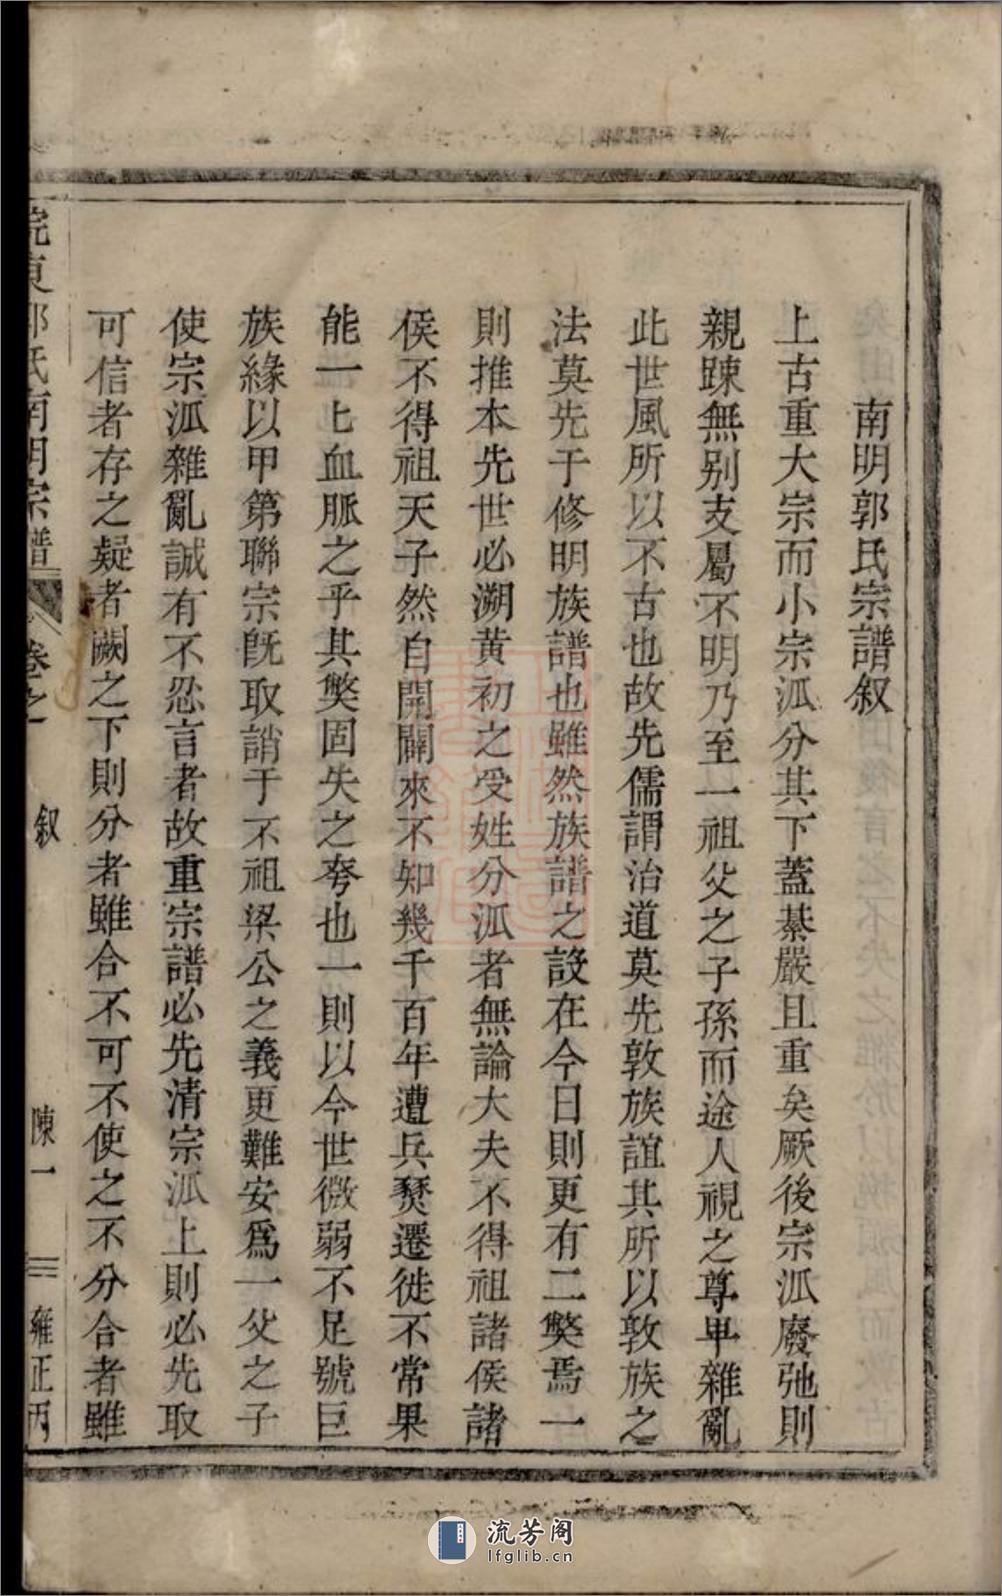 南明郭氏宗譜叙
上古重大宗而小宗泒分其下蓋綦嚴且重矣厥後宗泒廢弛則
親踈無别支屬不明乃至一祖父之子孫而途人視之尊卑雜亂
此世風所以不古也故先儒謂治道莫先敦族誼其所以敦族之
法莫先于修明族譜也雖然族譜之設在今日則更有二獘焉一
則推本先世必溯黄初之受姓分泒者無論大夫不得祖諸侯諸
侯不得祖天子然自開闢來不知幾千百年遭兵燹遷徙不常果
能一七血脈之乎其獘固失之夸也一則以今世微弱不足號巨
族緣以甲第聯宗旣取誚于不祖梁公之義更難安爲一父之子
使宗泒雜亂誠有不忍言者故重宗譜必先清宗泒上則必先取
可信者存之疑者闕之下則分者雖合不可不使之不分合者雖
皖東郭氏南明宗譜 卷之一 叙 陳一 雍正丙
流芳阁
lfglib.cn